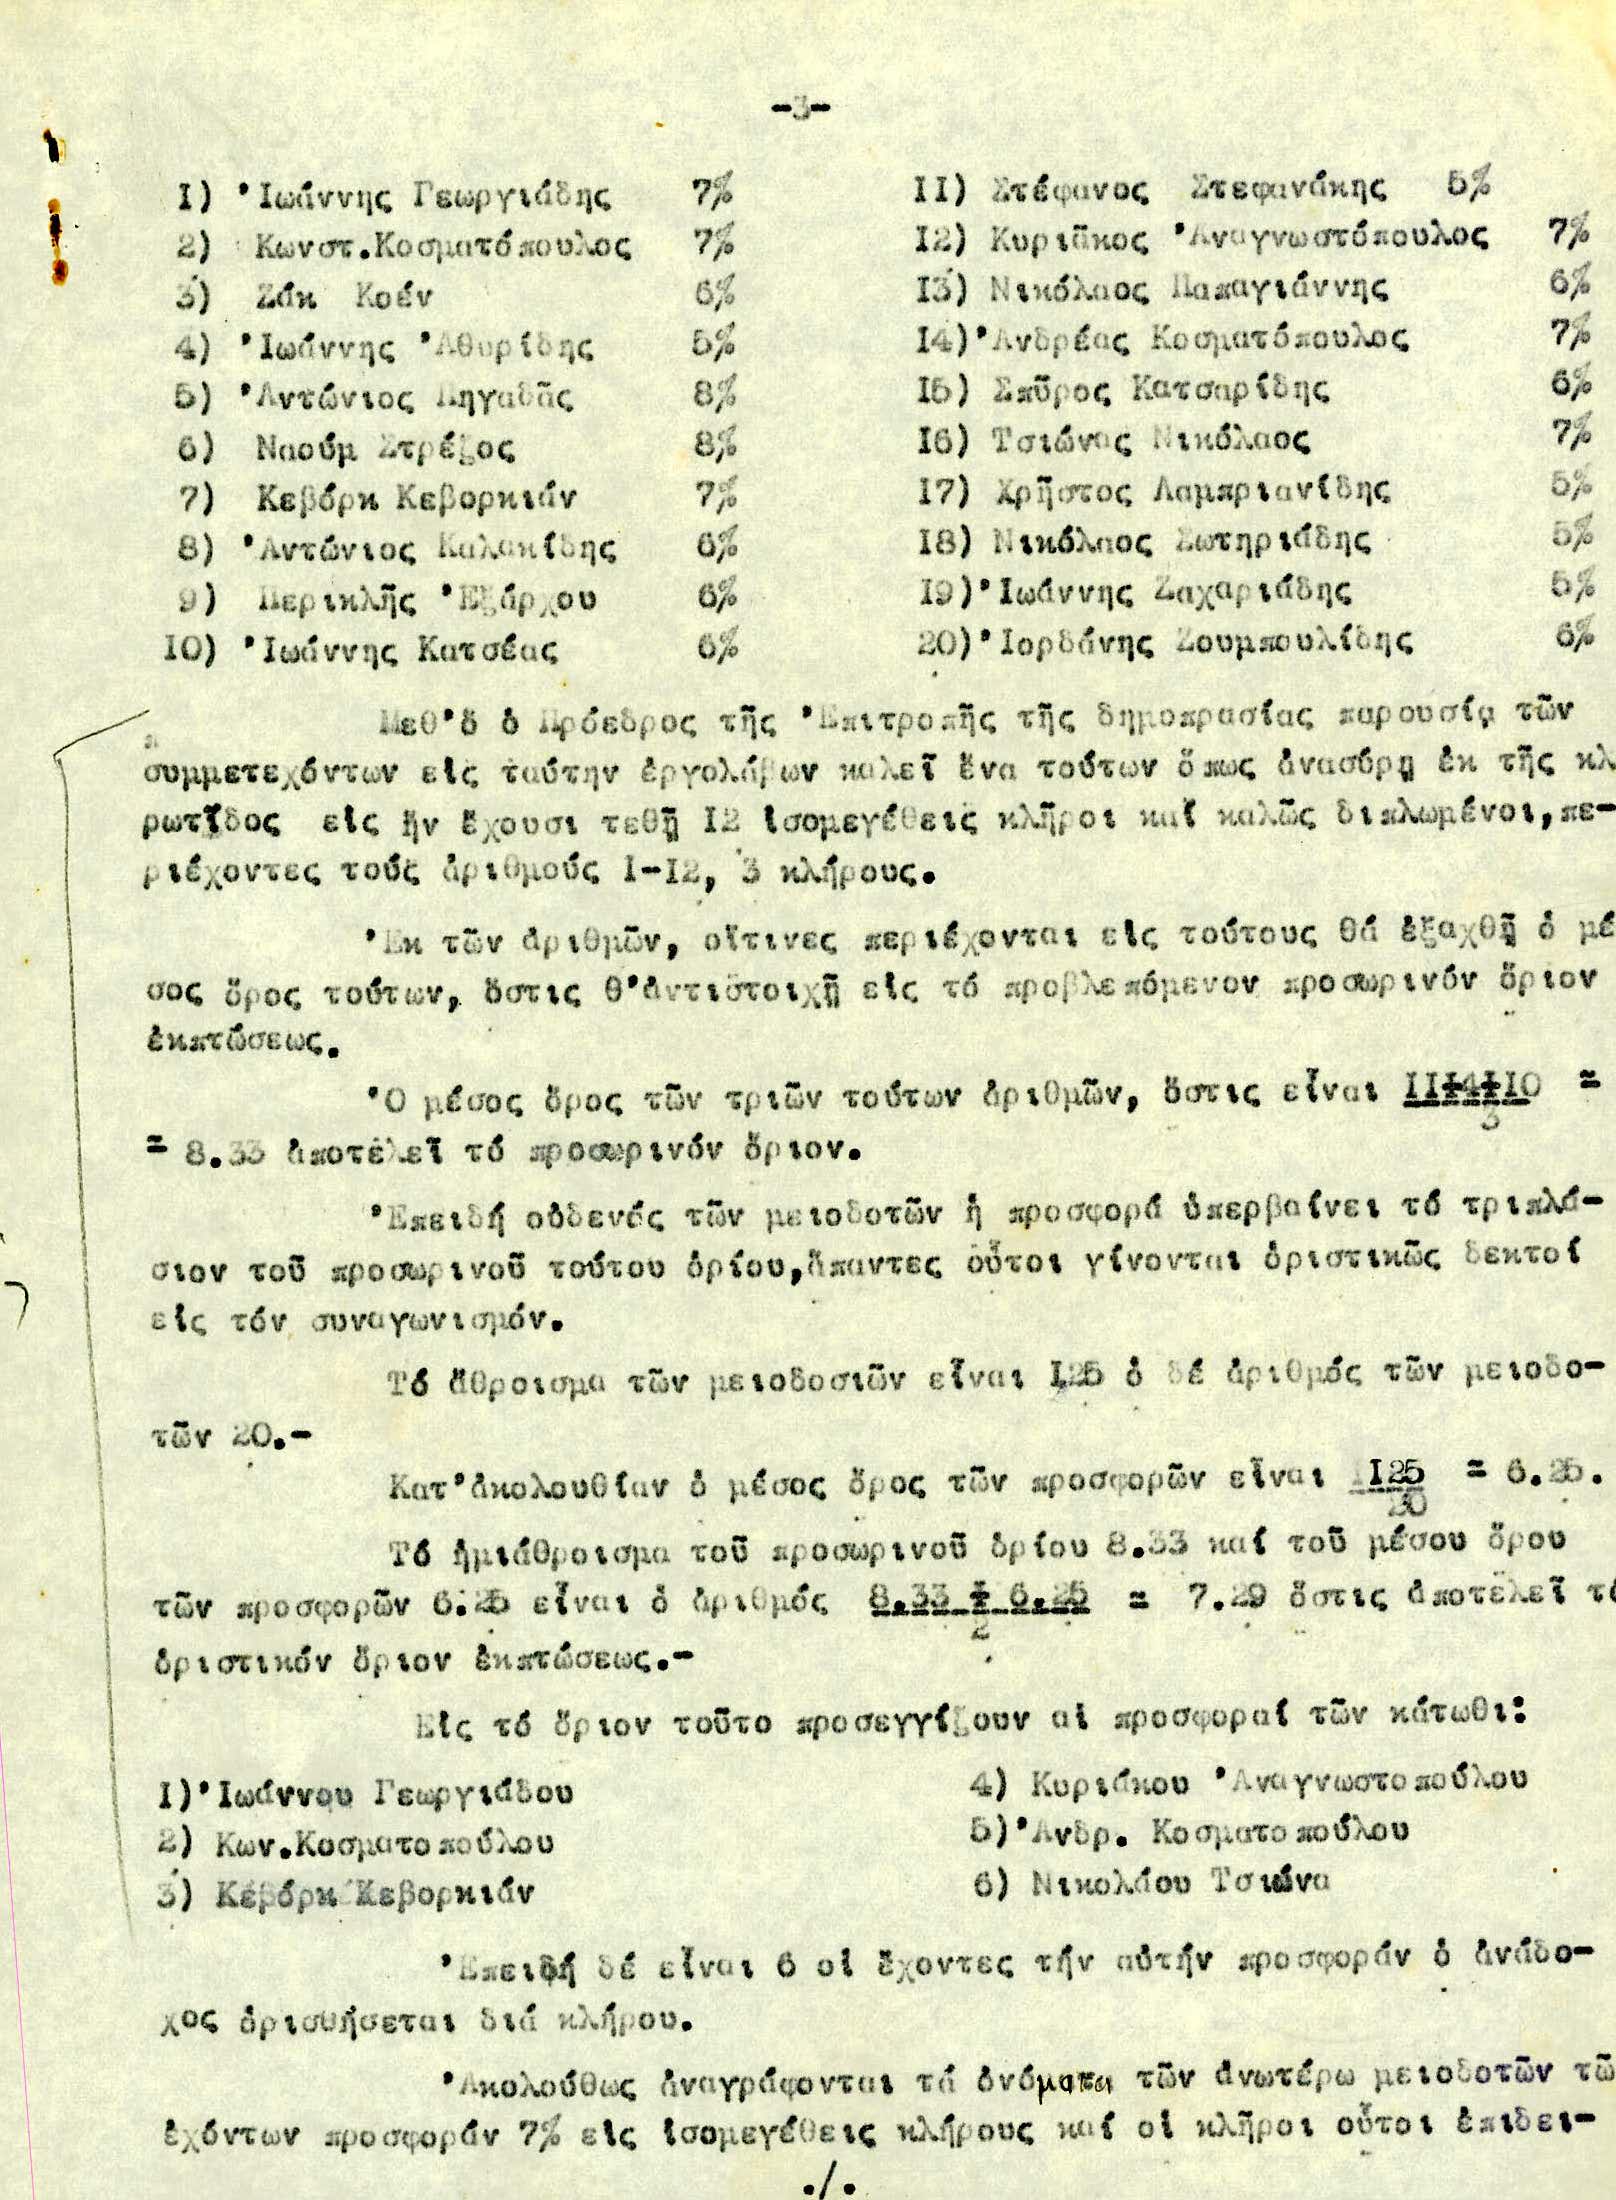 -3-
I) 'Ιωάννης Γεωργιάδης 7%
2) Κωνστ.Κοσματόπουλος 7%
3) Ζάκ Κοέν 6%
4) 'Ιωάννης 'Αθυρίδης 5%
5) 'Αντώνιος Πηγαδᾶς 8%
6) Ναούμ Στρέζος 8%
7) Κεβόρκ Κεβορκιάν 7%
8) 'Αντώνιος Καλακίδης 6%
9) Περικλῆς 'Εξάρχου 6%
IO) 'Ιωάννης Κατσέας 6%
II) Στέφανος Στεφανάκης 5%
I2) Κυριᾶκος 'Αναγνωστόπουλος 7%
I3) Νικόλαος Παπαγιάννης 6%
I4)'Ανδρέας Κοσματόπουλος 7%
I5) Σπῦρος Κατσαρίδης 6%
I6) Τσιώνας Νικόλαος 7%
I7) Χρῆστος Λαμπριανίδης 5%
I8) Νικόλαος Σωτηριάδης 5%
I9)'Ιωάννης Ζαχαριάδης 5%
20)'Ιορδάνης Ζουμπουλίδης 6%
Μεθ'ὅ ὁ Πρόεδρος τῆς 'Επιτροπῆς τῆς δημοπρασίας παρουσίᾳ τῶν
συμμετεχόντων εἰς ταύτην ἐργολάβων καλεῖ ἕνα τούτων ὅπως ἀνασύρῃ ἐκ τῆς κλ
ρωτῖδος εἰς ἥν ἔχουσι τεθῇ I2 ἰσομεγέθεις κλῆροι καί καλῶς διπλωμένοι,πε-
ριέχοντες τούς ἀριθμούς I-I2, 3 κλήρους.
'Εκ τῶν ἀριθμῶν, οἵτινες περιέχονται εἰς τούτους θά ἐξαχθῇ ὁ μέ
σος ὅρος τούτων, ὅστις θ'ἀντιστοιχῇ εἰς τό προβλεπόμενον προσωρινόν ὅριον
ἐκπτώσεως.
'Ο μέσος ὅρος τῶν τριῶν τούτων ἀριθμῶν, ὅστις εἶναι II+4+IO =
3
= 8.33 ἀποτελεῖ τό προσωρινόν ὅριον.
'Επειδή οὐδενός τῶν μειοδοτῶν ἡ προσφορά ὑπερβαίνει τό τριπλά-
σιον τοῦ προσωρινοῦ τούτου ὁρίου,ἅπαντες οὗτοι γίνονται ὁριστικῶς δεκτοί
εἰς τόν συναγωνισμόν.
Τό ἄθροισμα τῶν μειοδοσιῶν εἶναι I25 ὁ δέ ἀριθμός τῶν μειοδο-
τῶν 20.-
Κατ'ἀκολουθίαν ὁ μέσος ὅρος τῶν προσφορῶν εἶναι I25 = 6.25.
20
Τό ἡμιάθροισμα τοῦ προσωρινοῦ ὁρίου 8.33 καί τοῦ μέσου ὅρου
τῶν προσφορῶν 6.25 εἶναι ὁ ἀριθμός 8.33 + 6.25 = 7.29 ὅστις ἀποτελεῖ τό
2
ὁριστικόν ὅριον ἐκπτώσεως.-
Εἰς τό ὅριον τοῦτο προσεγγίζουν αἱ προσφοραί τῶν κάτωθι:
I)'Ιωάννου Γεωργιάδου
2) Κων.Κοσματοπούλου
3) Κεβόρκ Κεβορκιάν
4) Κυριάκου 'Αναγνωστοπούλου
5)'Ανδρ. Κοσματοπούλου
6) Νικολάου Τσιώνα
'Επειδή δέ εἶναι 6 οἱ ἔχοντες τήν αὐτήν προσφοράν ὁ ἀνάδο-
χος ὁρισθήσεται διά κλήρου.
'Ακολούθως ἀναγράφονται τά ὀνόματα τῶν ἀνωτέρω μειοδοτῶν τῶ
ἐχόντων προσφοράν 7% εἰς ἰσομεγέθεις κλήρους καί οἱ κλῆροι οὗτοι ἐπιδει-
./.